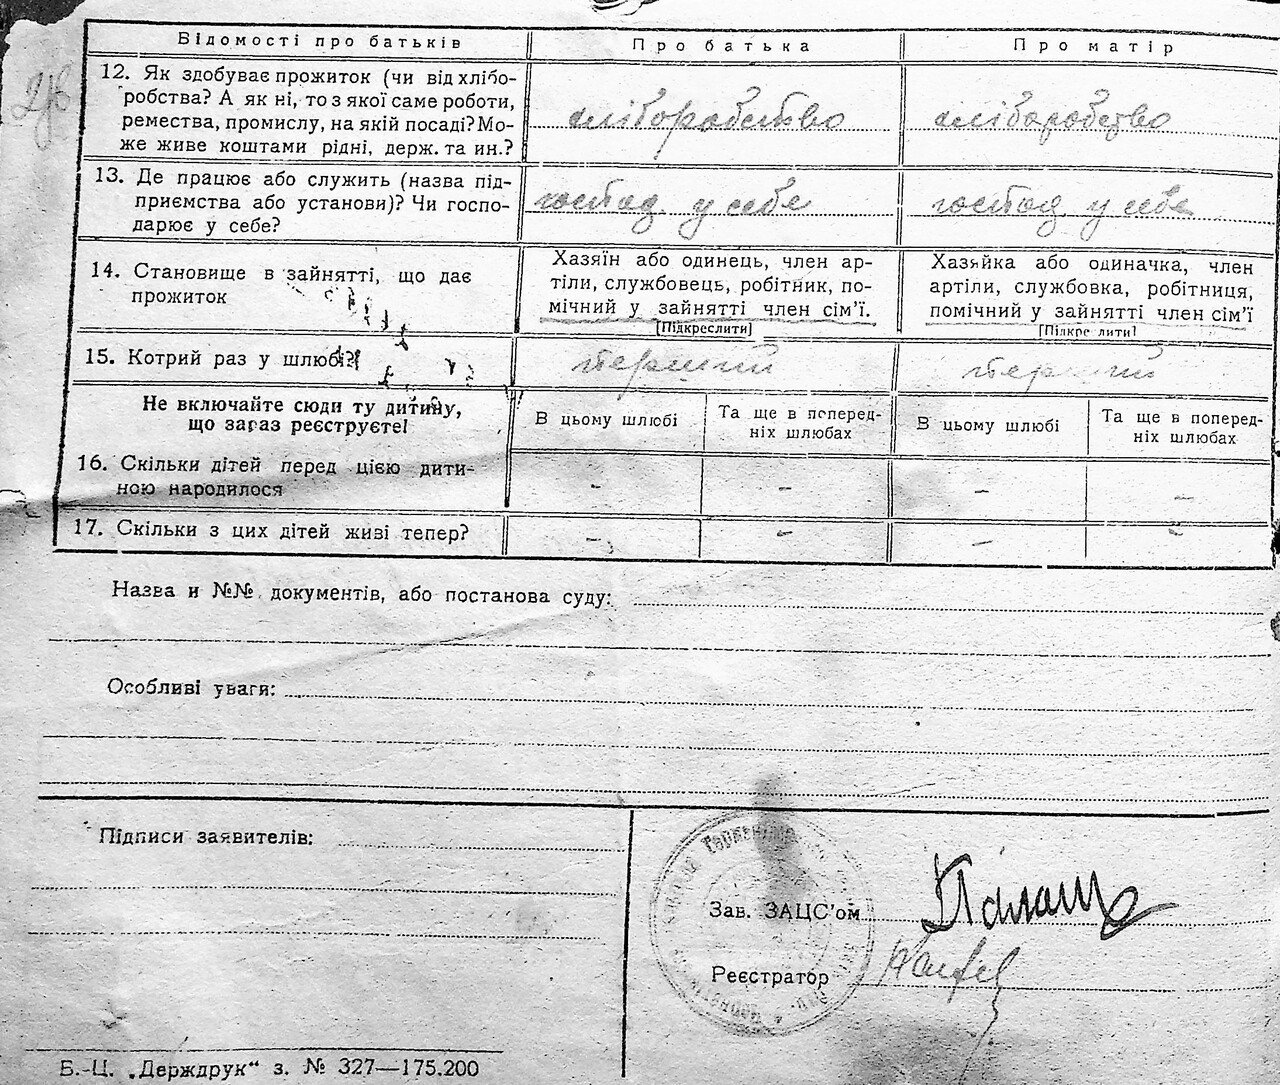 Відомості про батьків
Про батька
Про матір
12. Як здобуває прожиток (чи від хлібо-
робства? А як ні, то з якої саме роботи,
ремества, промислу, на якій посаді? Мо-
же живе коштами рідні, держ. та ин.?
хліборобство
хліборобство
13. Де працює або служить (назва під-
приємства або установи)? Чи госпо-
дарює у себе?
господ у себе
господ у себе
14. Становище в зайнятті, що дає
прожиток
Хазяїн або одинець, член ар-
тіли, службовець, робітник, по-
мічний у зайнятті член сім'ї.
[Підкреслити]
Хазяйка або одиначка, член
артіли, службовка, робітниця,
помічний у зайнятті член сім'ї
[Підкреслити]
15. Котрий раз у шлюбі?
перший
перший
Не включайте сюди ту дитину,
що зараз реєструєте!
В цьому шлюбі
Та ще в поперед-
ніх шлюбах
В цьому шлюбі
Та ще в поперед-
ніх шлюбах
16. Скільки дітей перед цією дити-
ною народилося
- - - -
17. Скільки з цих дітей живі тепер?
- - - -
Назва и №№ документів, або постанова суду:
Особливі уваги:
Підписи заявителів:
Зав. ЗАЦС'ом
Реєстратор
Б.-Ц. „Держдрук“ з. № 327—175.200